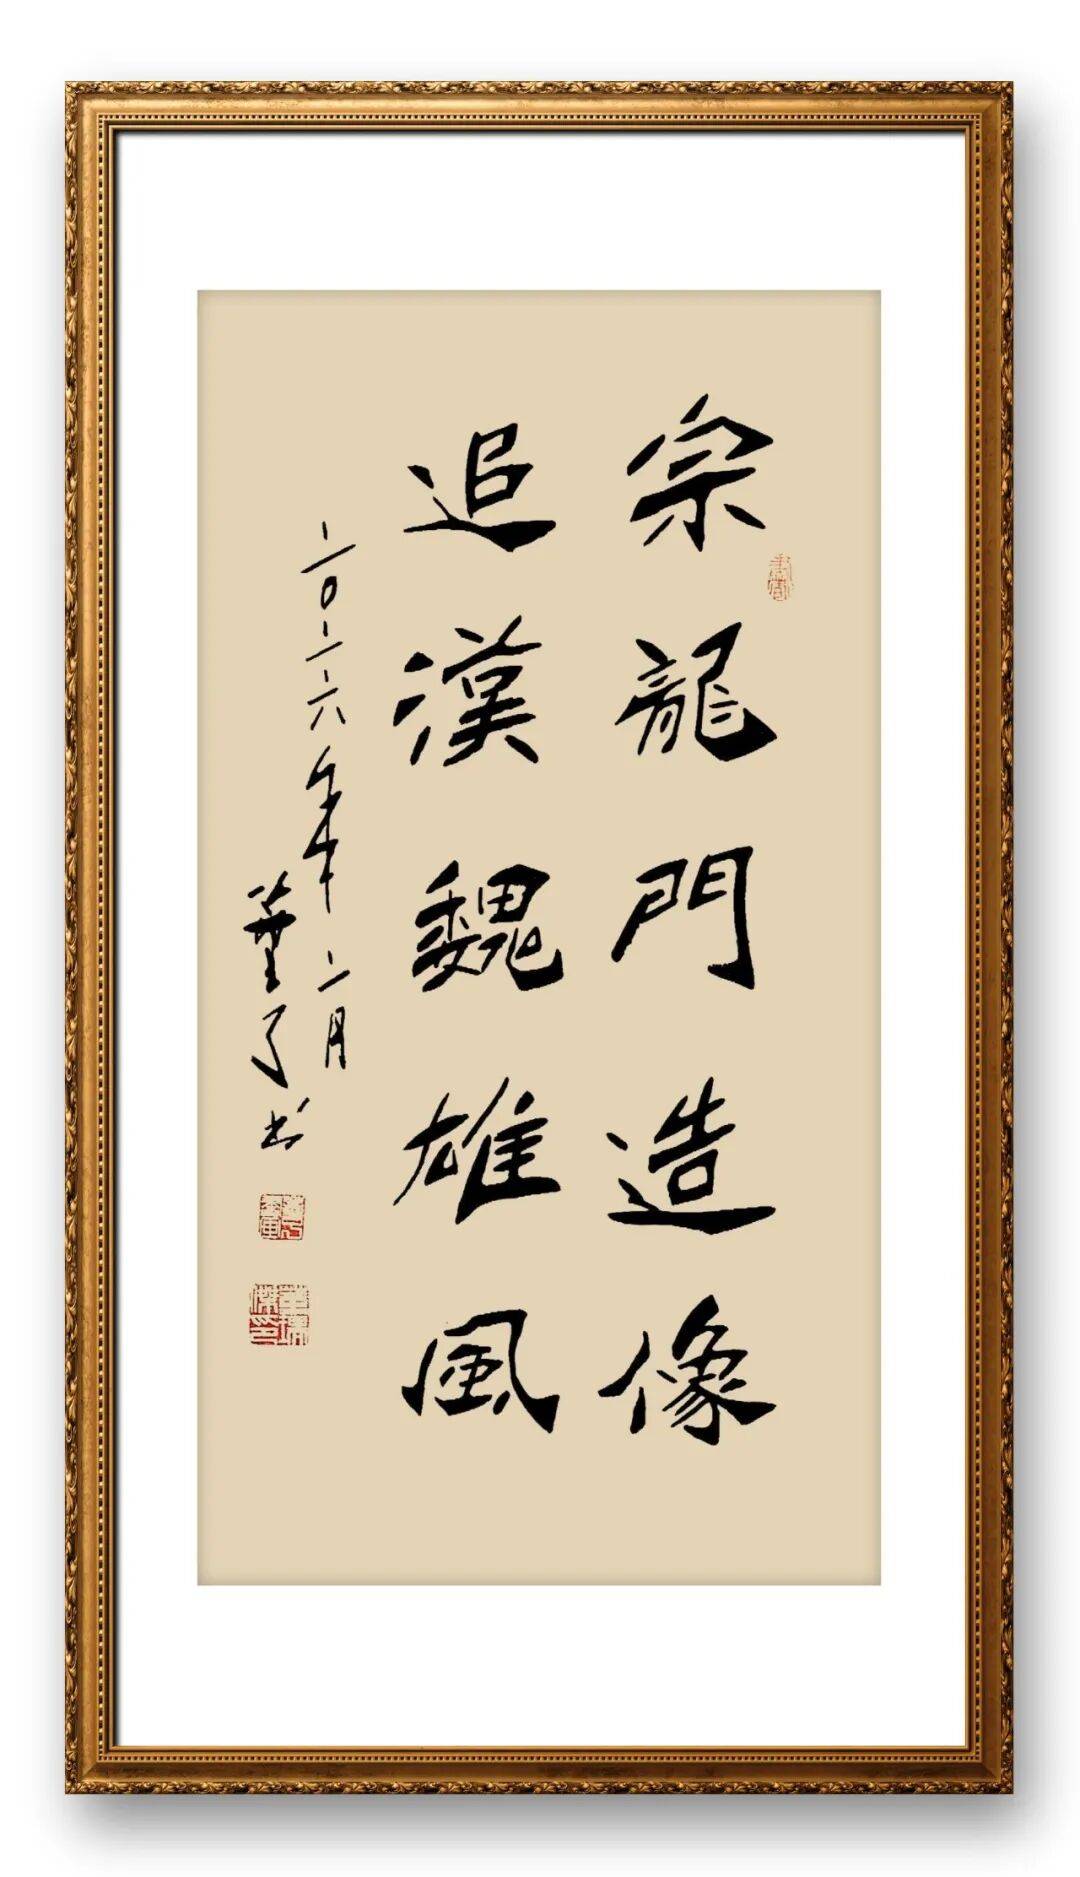 宗龍門造像
追漢魏雄風
二0二六年二月
董了书